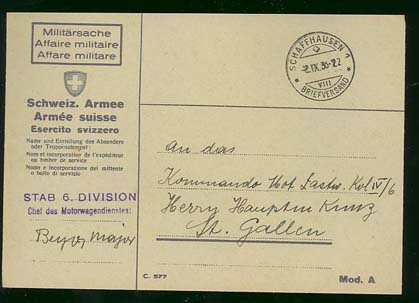 Militärsache
Affaire militaire
Affare militare
Schweiz. Armee
Armée suisse
Esercito svizzero
Name und Einteilung des Absenders
oder Truppenstempel:
Nom et incorporation de l'expéditeur
ou timbre de service
Nome e incorporazione del mittente
o bollo di servizio
STAB 6. DIVISION
Chef des Motorwagendienstes
Major
SCHAFFHAUSEN 1
2.IX.36-22
VIII
BRIEFVERSAND
An das
Kommando Mot. Lastw. Kol IV/6
Herrn Hauptm Kunz
St. Gallen
C. 577
Mod. A